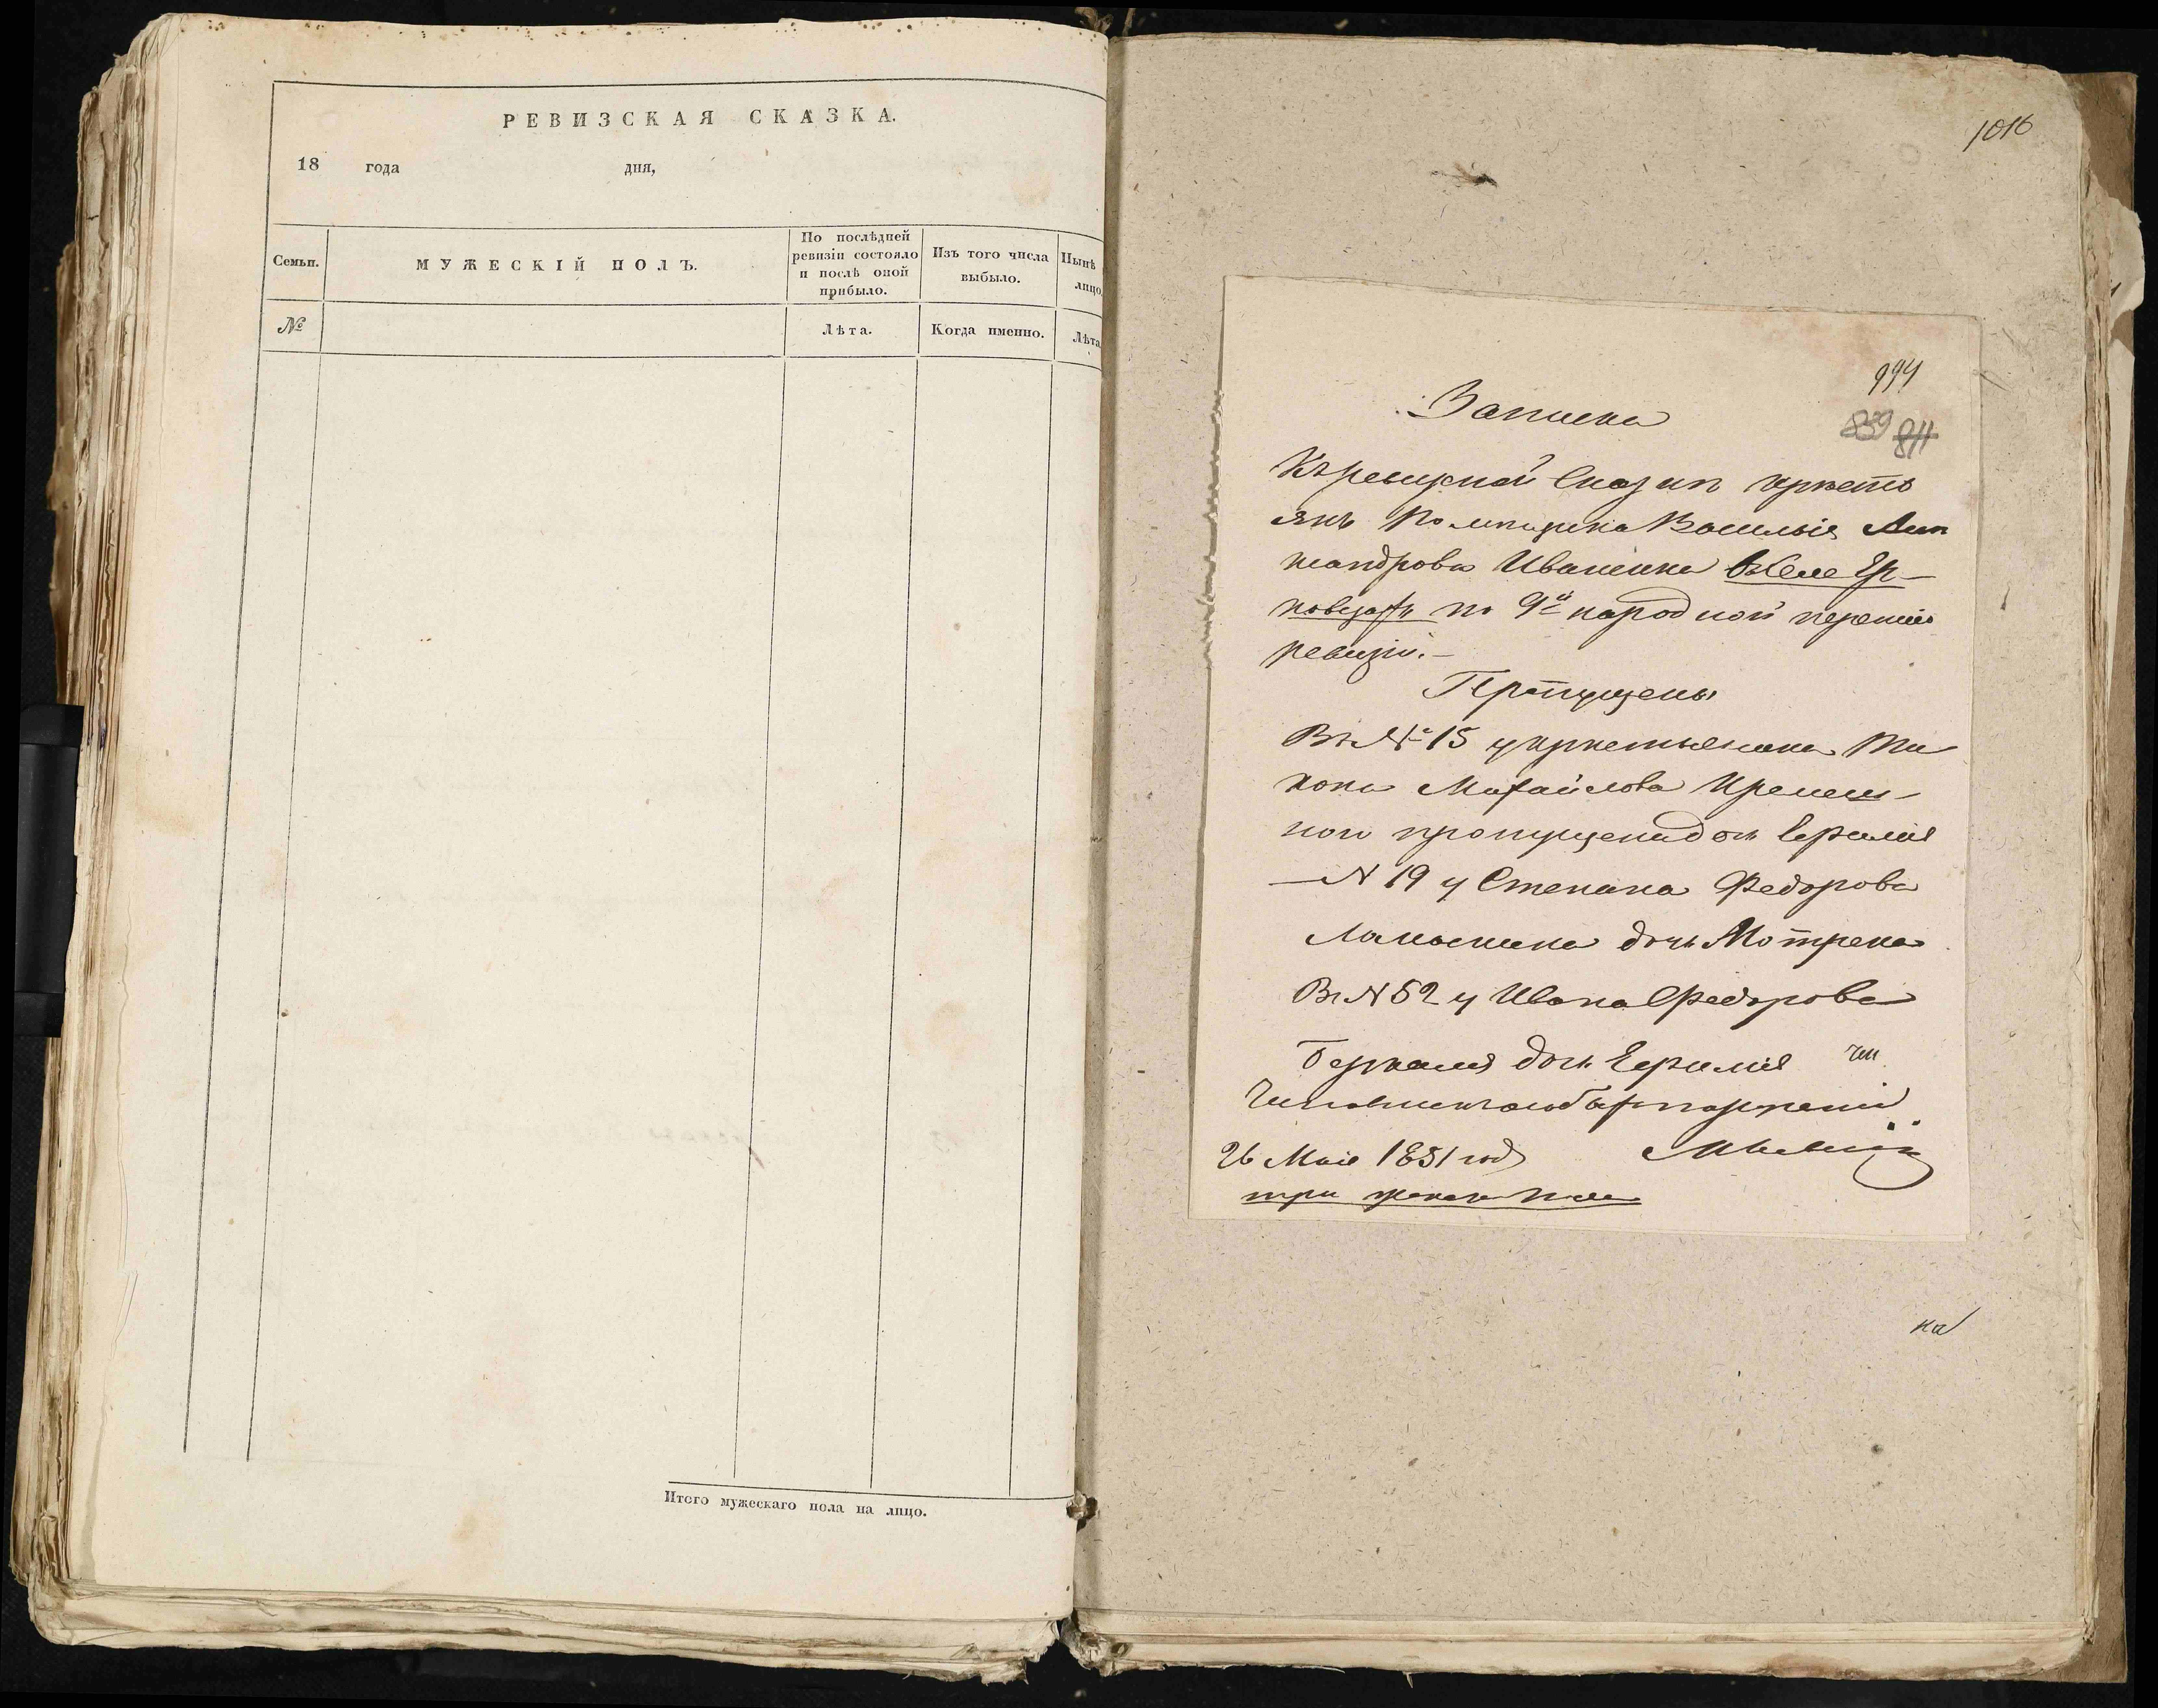 РЕВИЗСКАЯ СКАЗКА.
18 года дня,
Семьи.
МУЖЕСКІЙ ПОЛЪ.
По послѣдней
ревизіи состояло
и послѣ оной
прибыло.
Изъ того числа
выбыло.
Нынѣ
лицо
№
Лѣта.
Когда именно.
Лѣта
Итого мужескаго пола на лицо.
1016
994
839 811
Записка
Къ ревизкой Сказкѣ крестья
янъ Помещика Василья Алек
сандрова Иваненка въ Селе
по 9й народной переписи
ревизіи.—
Пропущены
Въ № 15 у крестьянина Ти
хона Михайлова
пропущена дочь Ефимія
— N 19 у Степана Федорова
дочь Мотрена
Въ N 52 у Ивана Федорова
дочь Ефимія
26 Мая 1851 год
три женска пола
на